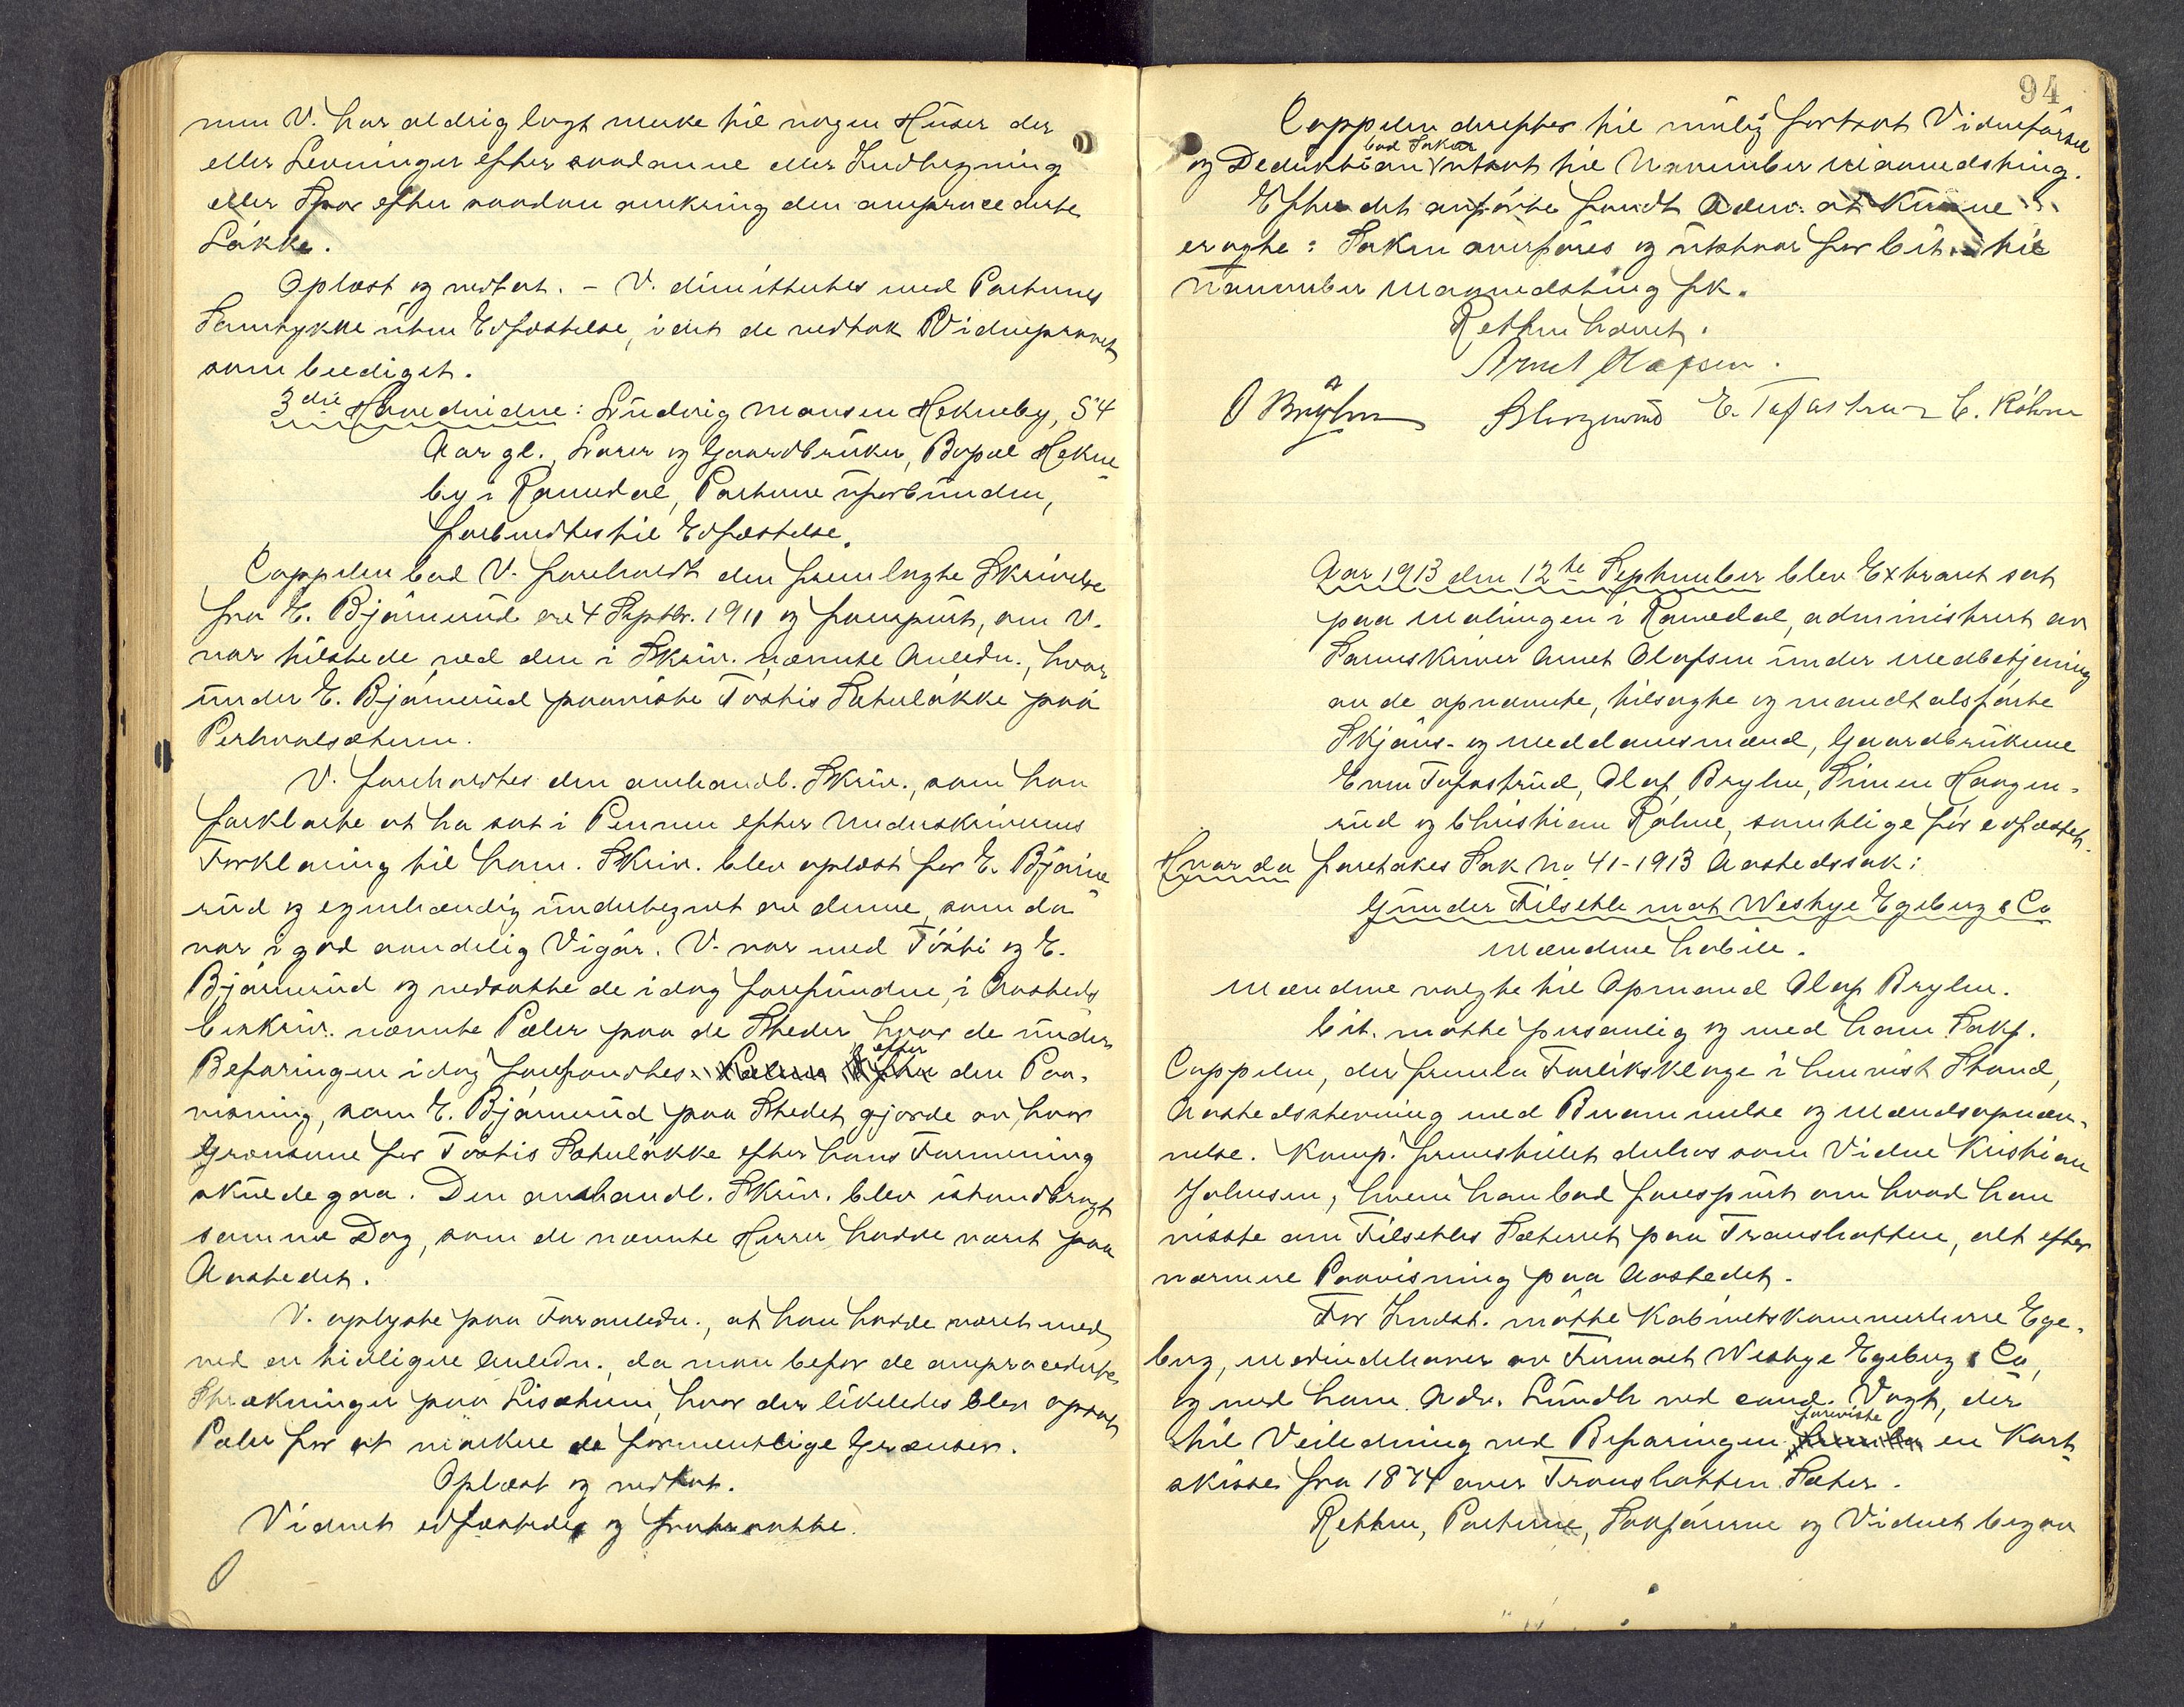 men V. har aldrig lagt merke til nogen Huser der
eller Levninger efter saadanne eller Indhegning
eller Spor efter saadan omkring den omprocederte
Løkke.
Oplæst og vedtat. - V. dimittertes med Parternes
Samtykke uten Edfæstelse, idet de vedtok Vidneprovet
som beediget.
3die Hovedvidne: Ludvig Monsen Hekneby, 54
Aar gl., Lærer og Gaardbruker, Bopæl Hekne-
by i Romedal, Parterne uforbunden,
forberedtes til Edfæstelse.
Cappelen bad V. foreholdt den fremlagte Skrivelse
fra E. Bjørnerud av 4 Septbr. 1911 og forespurt, om V.
var tilstede ved den i Skriv. nævnte Anledn., hvor
under E. Bjørnerud paaviste Tostis Sæterløkke paa
Perhvalsæteren.
V. foreholdtes den omhandl. Skriv., som han
forklarte at ha sat i Pennen efter Underskriverens
Forklaring til ham. Skriv. blev oplæst for E. Bjørne
rud og egenhændig undertegnet av denne, som da
var i god aandelig Vigør. V. var med Tosti og E.
Bjørnerud og nedsatte de idag forefundne, i Aasteds
beskriv. nævnte Pæler paa de Steder hvor de under
Befaringen idag forefandtes efter den Paa-
visning, som E. Bjørnerud paa Stedet gjorde av, hvor
Grænsene for Tostis Sæterløkke efter hans Formening
skulde gaa. Den omhandl. Skriv. blev istandbragt
samme Dag, som de nævnte Herrer hadde været paa
Aastedet.
V. oplyste paa Foranledn., at han hadde været med
ved en tidligere Anledn., da man befor de omprocederte
Strækninger paa Lisæteren, hvor der likeledes blev opsat
Pæler for at markere de formentlige Grænser.
Oplæst og vedtat.
Vidnet edfæstedes og fratraatte.
94
Cappelen derefter til mulig fortsat Vidneførsel
bad Saken
og Deduktion utsat til November Maanedsting.
Efter det anførte fandt Adm. at kunne
eragte: Saken overføres og utstaar for Cit. til
November Maanedsting fk.
Retten hævet.
Arnet Olafsen.
O Bryhn S Haagenrud E. Tofastrud C. Røhne
Aar 1913 den 12te September blev Extraret sat
paa Malungen i Romedal, administrert av
Sorenskriver Arnet Olafsen under Medbetjening
av de opnævnte, tilsagte og mandtalsførte
Skjøns- og Meddomsmænd, Gaardbrukerne
Even Tofastrud, Olaf Bryhn, Simen Haagen-
rud og Christian Røhne, samtlige før edfæstet.
Hvor da foretakes Sak No 41-1913 Aastedssak:
Gunder Filseth mot Westye Egeberg & Co
Mændene habile.
Mændene valgte til Opmand Olaf Bryhn.
Cit. møtte personlig og med ham Sakf.
Cappelen, der fremla Forliksklage i henvist Stand,
Aastedsstevning med Berammelse og Mændsopnæv-
nelse. Komp. fremstillet derhos som Vidne Kristian
Johnsen, hvem han bad forespurt om hvad han
visste om Filseths Sæterret paa Transhatten, alt efter
nærmere Paavisning paa Aastedet.
For Indst. møtte Kabinetskammerherre Ege-
berg, Medindehaver av Firmaet Westye Egeberg & Co,
og med ham Adv. Lundh ved cand. Vogt, der
foreviste
til Veiledning ved Befaringen en Kart
skisse fra 1874 over Transhatten Sæter.
Retten, Parterne, Sakførerne og Vidnet begav